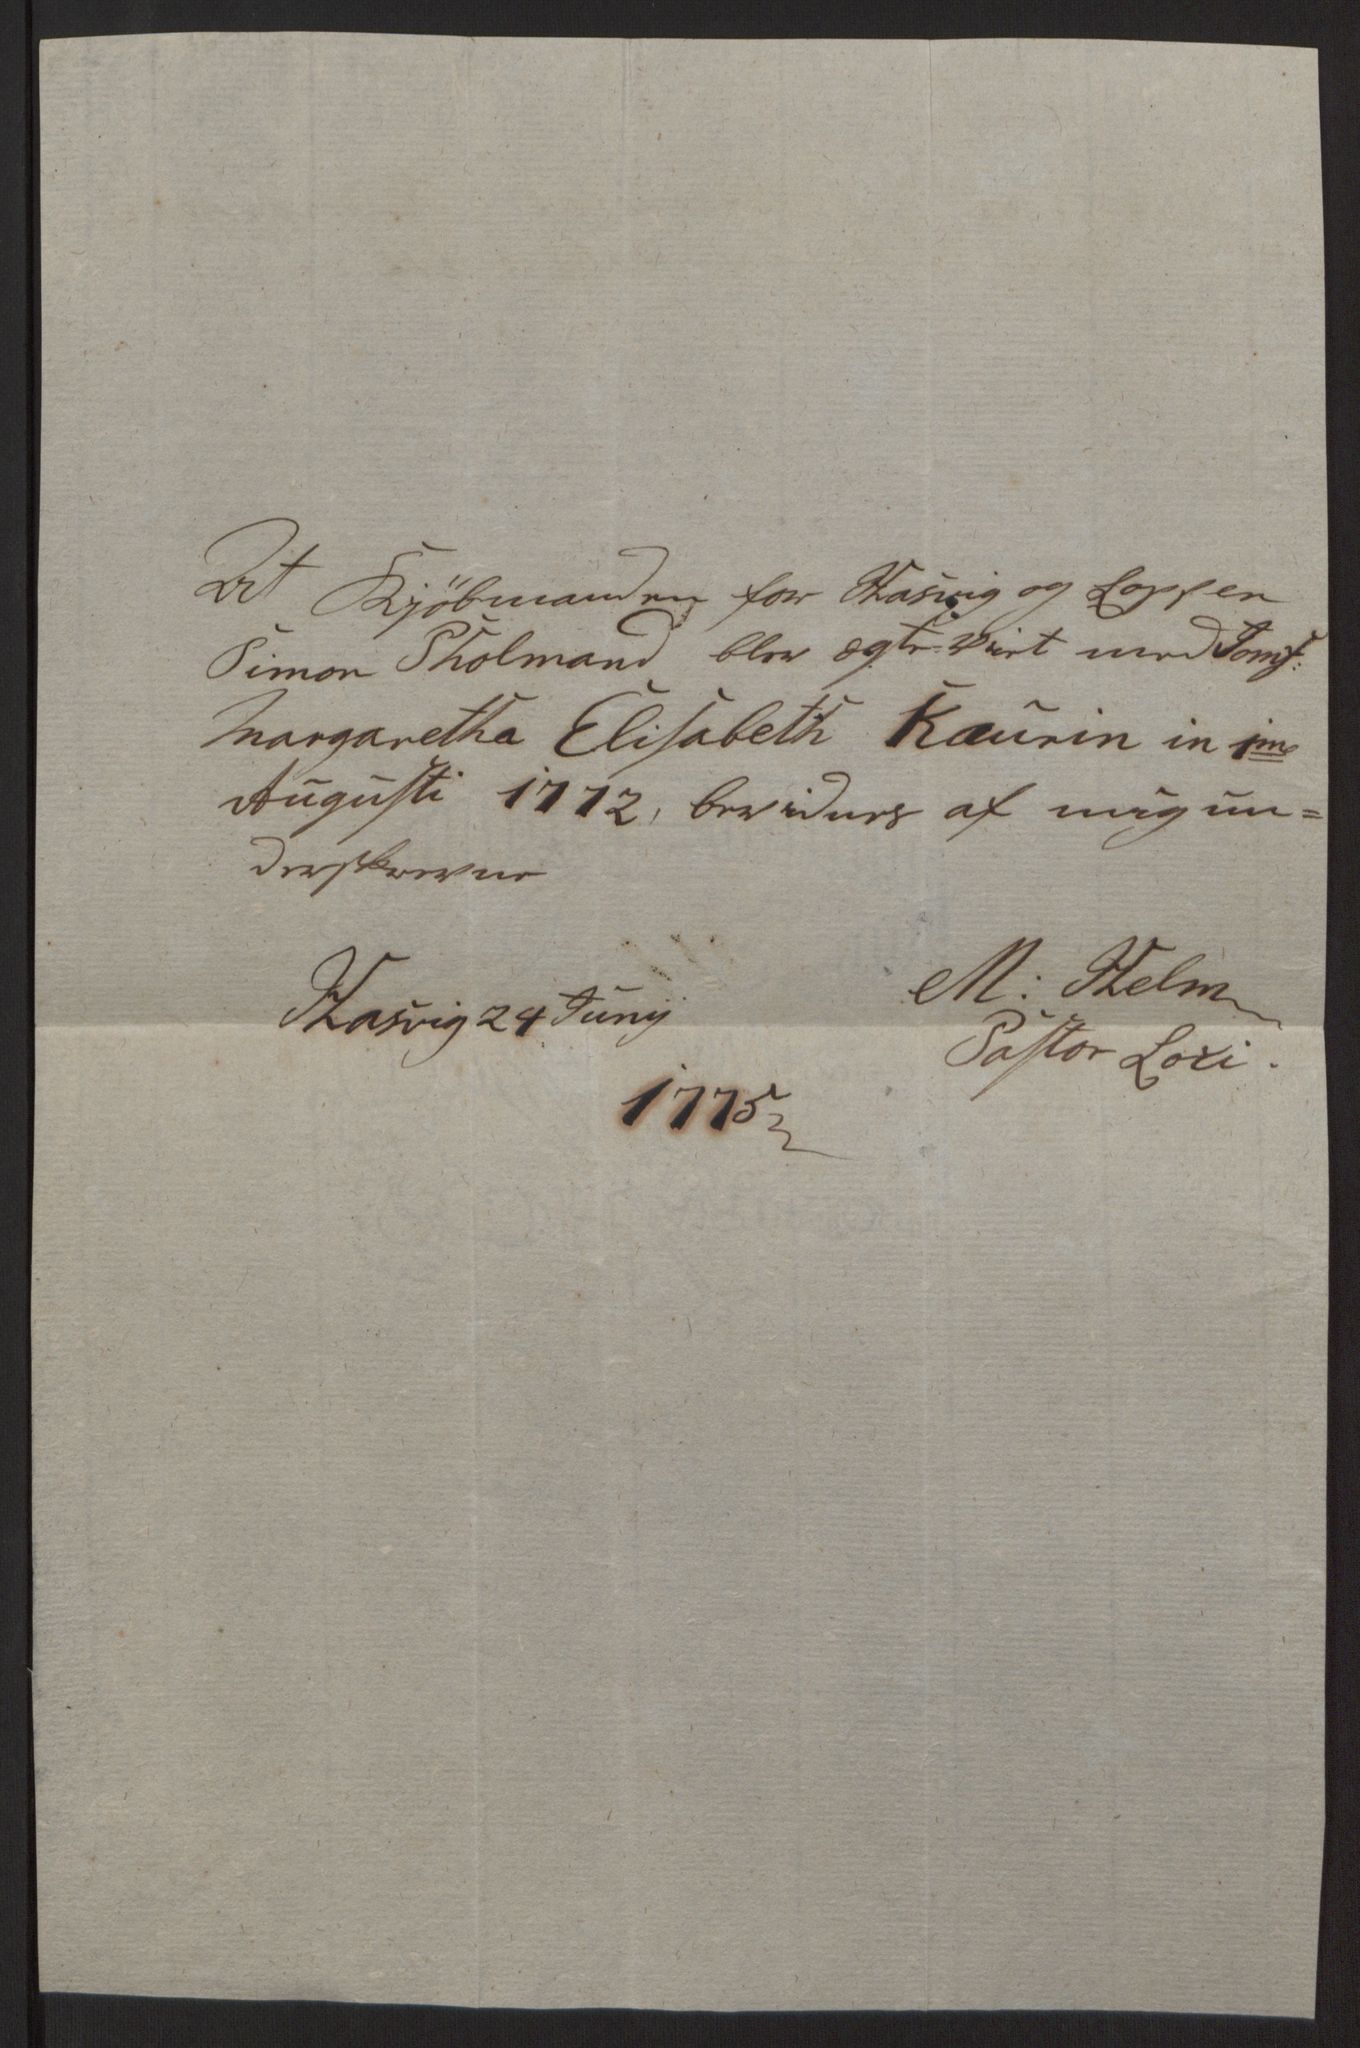 At Kjöbmanden for Hasvig og Loppen
Simon Sholmand blev ægte-viet med Jomf:
Margaretha Elisabeth Kaurin in 1me
Augusti 1772, bevidnes af mig un=
derskrevne
Hasvig 24 Juny
1775
M: Helm
Pastor Loci.